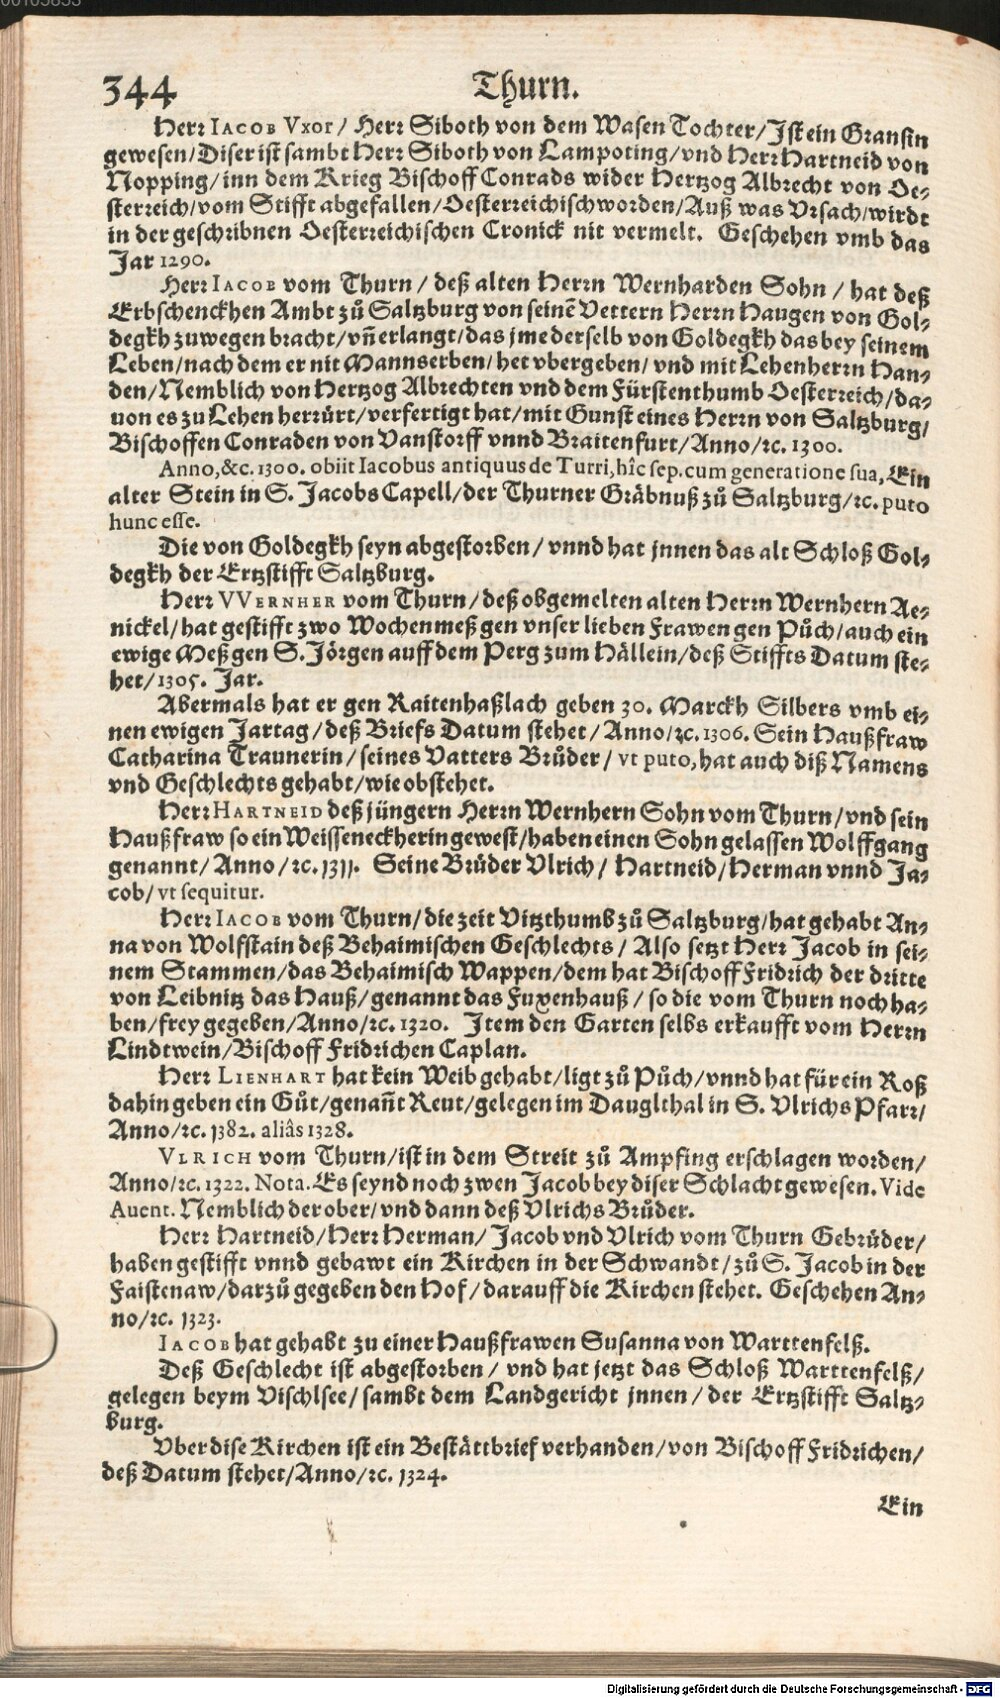 00105833
344
Thurn.
Herr IACOB Vxor / Herr Siboth von dem Wasen Tochter / Ist ein Gransin
gewesen / Diser ist sambt Herr Siboth von Lampoting / vnd Herr Hartneid von
Nopping / inn dem Krieg Bischoff Conrads wider Hertzog Albrecht von Oe-
sterreich / vom Stifft abgefallen / Oesterreichisch worden / Auß was Vrsach / wirdt
in der geschribnen Oesterreichischen Cronick nit vermelt. Geschehen vmb das
Jar 1290.
Herr IACOB vom Thurn / deß alten Herrn Wernharden Sohn / hat deß
Erbschenckhen Ambt zů Saltzburg von seinẽ Vettern Herrn Haugen von Gol-
degkh zuwegen bracht / vñ erlangt / das jme derselb von Goldegkh das bey seinem
Leben / nach dem er nit Mannserben / het vbergeben / vnd mit Lehenherrn Han-
den / Nemblich von Hertzog Albrechten vnd dem Fürstenthumb Oesterreich / da-
uon es zu Lehen herrürt / verfertigt hat / mit Gunst eines Herrn von Saltzburg /
Bischoffen Conraden von Vanstorff vnnd Braitenfurt / Anno / ꝛc. 1300.
Anno, &c. 1300. obiit Iacobus antiquus de Turri, hîc sep. cum generatione sua, Ein
alter Stein in S. Jacobs Capell / der Thurner Gräbnuß zů Saltzburg / ꝛc. puto
hunc esse.
Die von Goldegkh seyn abgestorben / vnnd hat jnnen das alt Schloß Gol-
degkh der Ertzstifft Saltzburg.
Herr VVERNHER vom Thurn / deß obgemelten alten Herrn Wernhern Ae-
nickel / hat gestifft zwo Wochenmeß gen vnser lieben Frawen gen Půch / auch ein
ewige Meß gen S. Jörgen auff dem Perg zum Hällein / deß Stiffts Datum ste-
het / 1305. Jar.
Abermals hat er gen Raitenhaßlach geben 30. Marckh Silbers vmb ei-
nen ewigen Jartag / deß Briefs Datum stehet / Anno / ꝛc. 1306. Sein Haußfraw
Catharina Traunerin / seines Vatters Brůder / vt puto, hat auch diß Namens
vnd Geschlechts gehabt / wie obstehet.
Herr HARTNEID deß jüngern Herrn Wernhern Sohn vom Thurn / vnd sein
Haußfraw so ein Weisseneckherin gewest / haben einen Sohn gelassen Wolffgang
genannt / Anno / ꝛc. 1311. Seine Brüder Vlrich / Hartneid / Herman vnnd Ja-
cob / vt sequitur.
Herr IACOB vom Thurn / die zeit Vitzthumb zů Saltzburg / hat gehabt An-
na von Wolfstain deß Behaimischen Geschlechts / Also setzt Herr Jacob in sei-
nem Stammen / das Behaimisch Wappen / dem hat Bischoff Fridrich der dritte
von Leibnitz das Hauß / genannt das Fuxenhauß / so die vom Thurn noch ha-
ben / frey gegeben / Anno / ꝛc. 1320. Item den Garten selbs erkaufft vom Herrn
Lindtwein / Bischoff Fridrichen Caplan.
Herr LIENHART hat kein Weib gehabt / ligt zů Půch / vnnd hat für ein Roß
dahin geben ein Gůt / genañt Reut / gelegen im Dauglthal in S. Vlrichs Pfarr /
Anno / ꝛc. 1382. aliâs 1328.
VLRICH vom Thurn / ist in dem Streit zů Ampfing erschlagen worden /
Anno / ꝛc. 1322. Nota. Es seynd noch zwen Jacob bey diser Schlacht gewesen. Vide
Auent. Nemblich der ober / vnd dann deß Vlrichs Brůder.
Herr Hartneid / Herr Herman / Jacob vnd Vlrich vom Thurn Gebrüder /
haben gestifft vnnd gebawt ein Kirchen in der Schwandt / zů S. Jacob in der
Faistenaw / darzů gegeben den Hof / darauff die Kirchen stehet. Geschehen An-
no / ꝛc. 1323.
IACOB hat gehabt zu einer Haußfrawen Susanna von Warttenfelß.
Deß Geschlecht ist abgestorben / vnd hat jetzt das Schloß Warttenfelß /
gelegen beym Vischlsee / sambt dem Landgericht jnnen / der Ertzstifft Saltz-
burg.
Vber dise Kirchen ist ein Bestättbrief verhanden / von Bischoff Fridrichen /
deß Datum stehet / Anno / ꝛc. 1324.
Ein
Digitalisierung gefördert durch die Deutsche Forschungsgemeinschaft - DFG